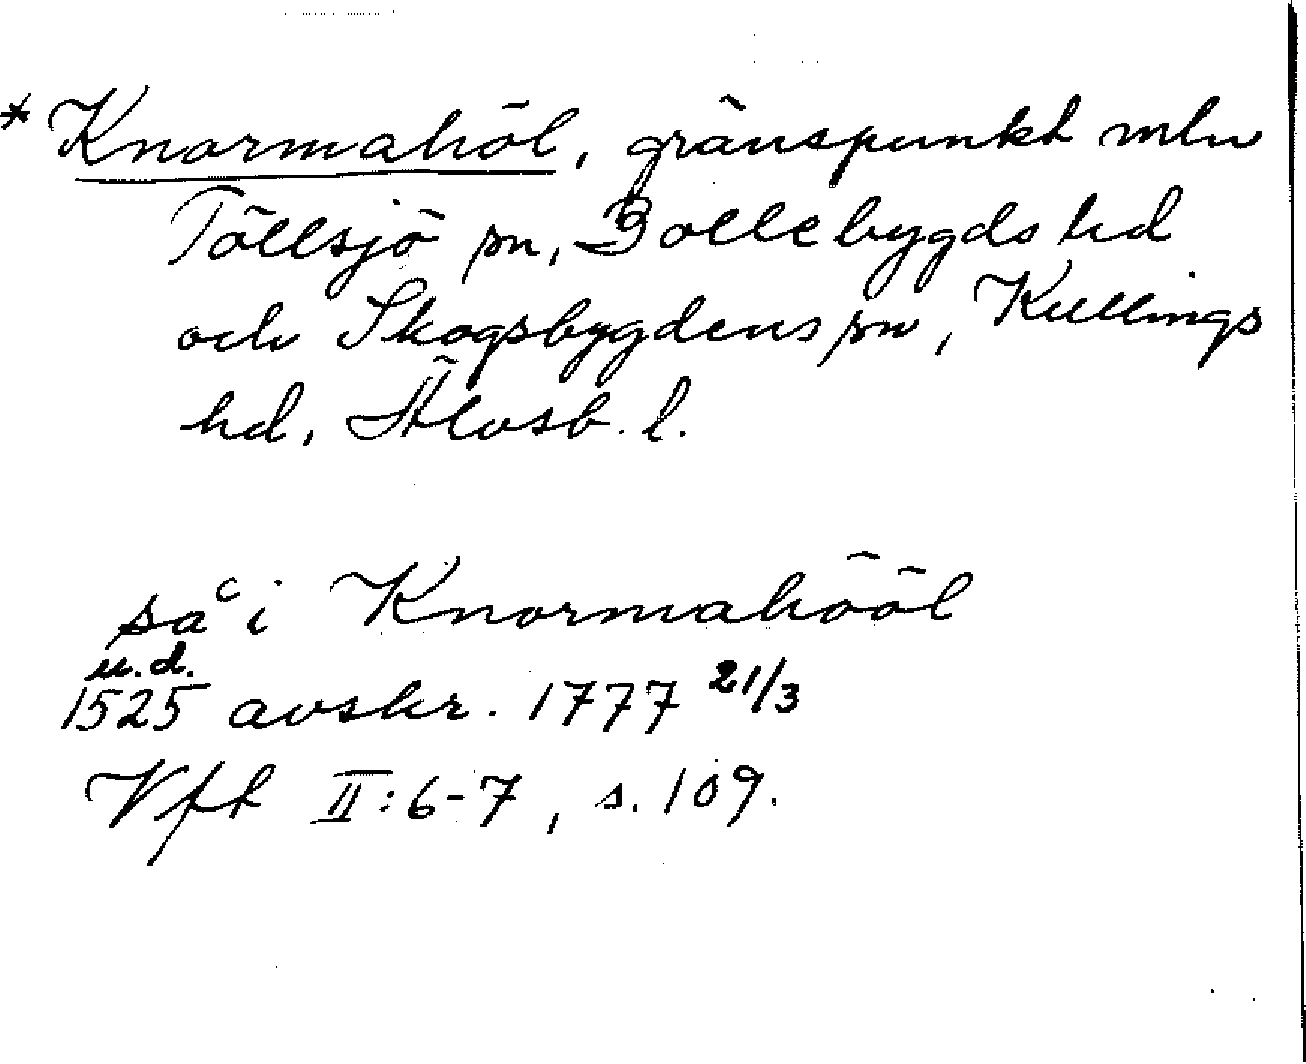 * Knormahöl, gränspunkt mln
Töllsjö sn, Bollebygds hd
och Skogsbygdens sn, Kullings
hd, Älvsb. l.
så i Knormahööl
u.d.
1525 avskr. 1777 21/3
Vfk II: 6-7, s. 109.